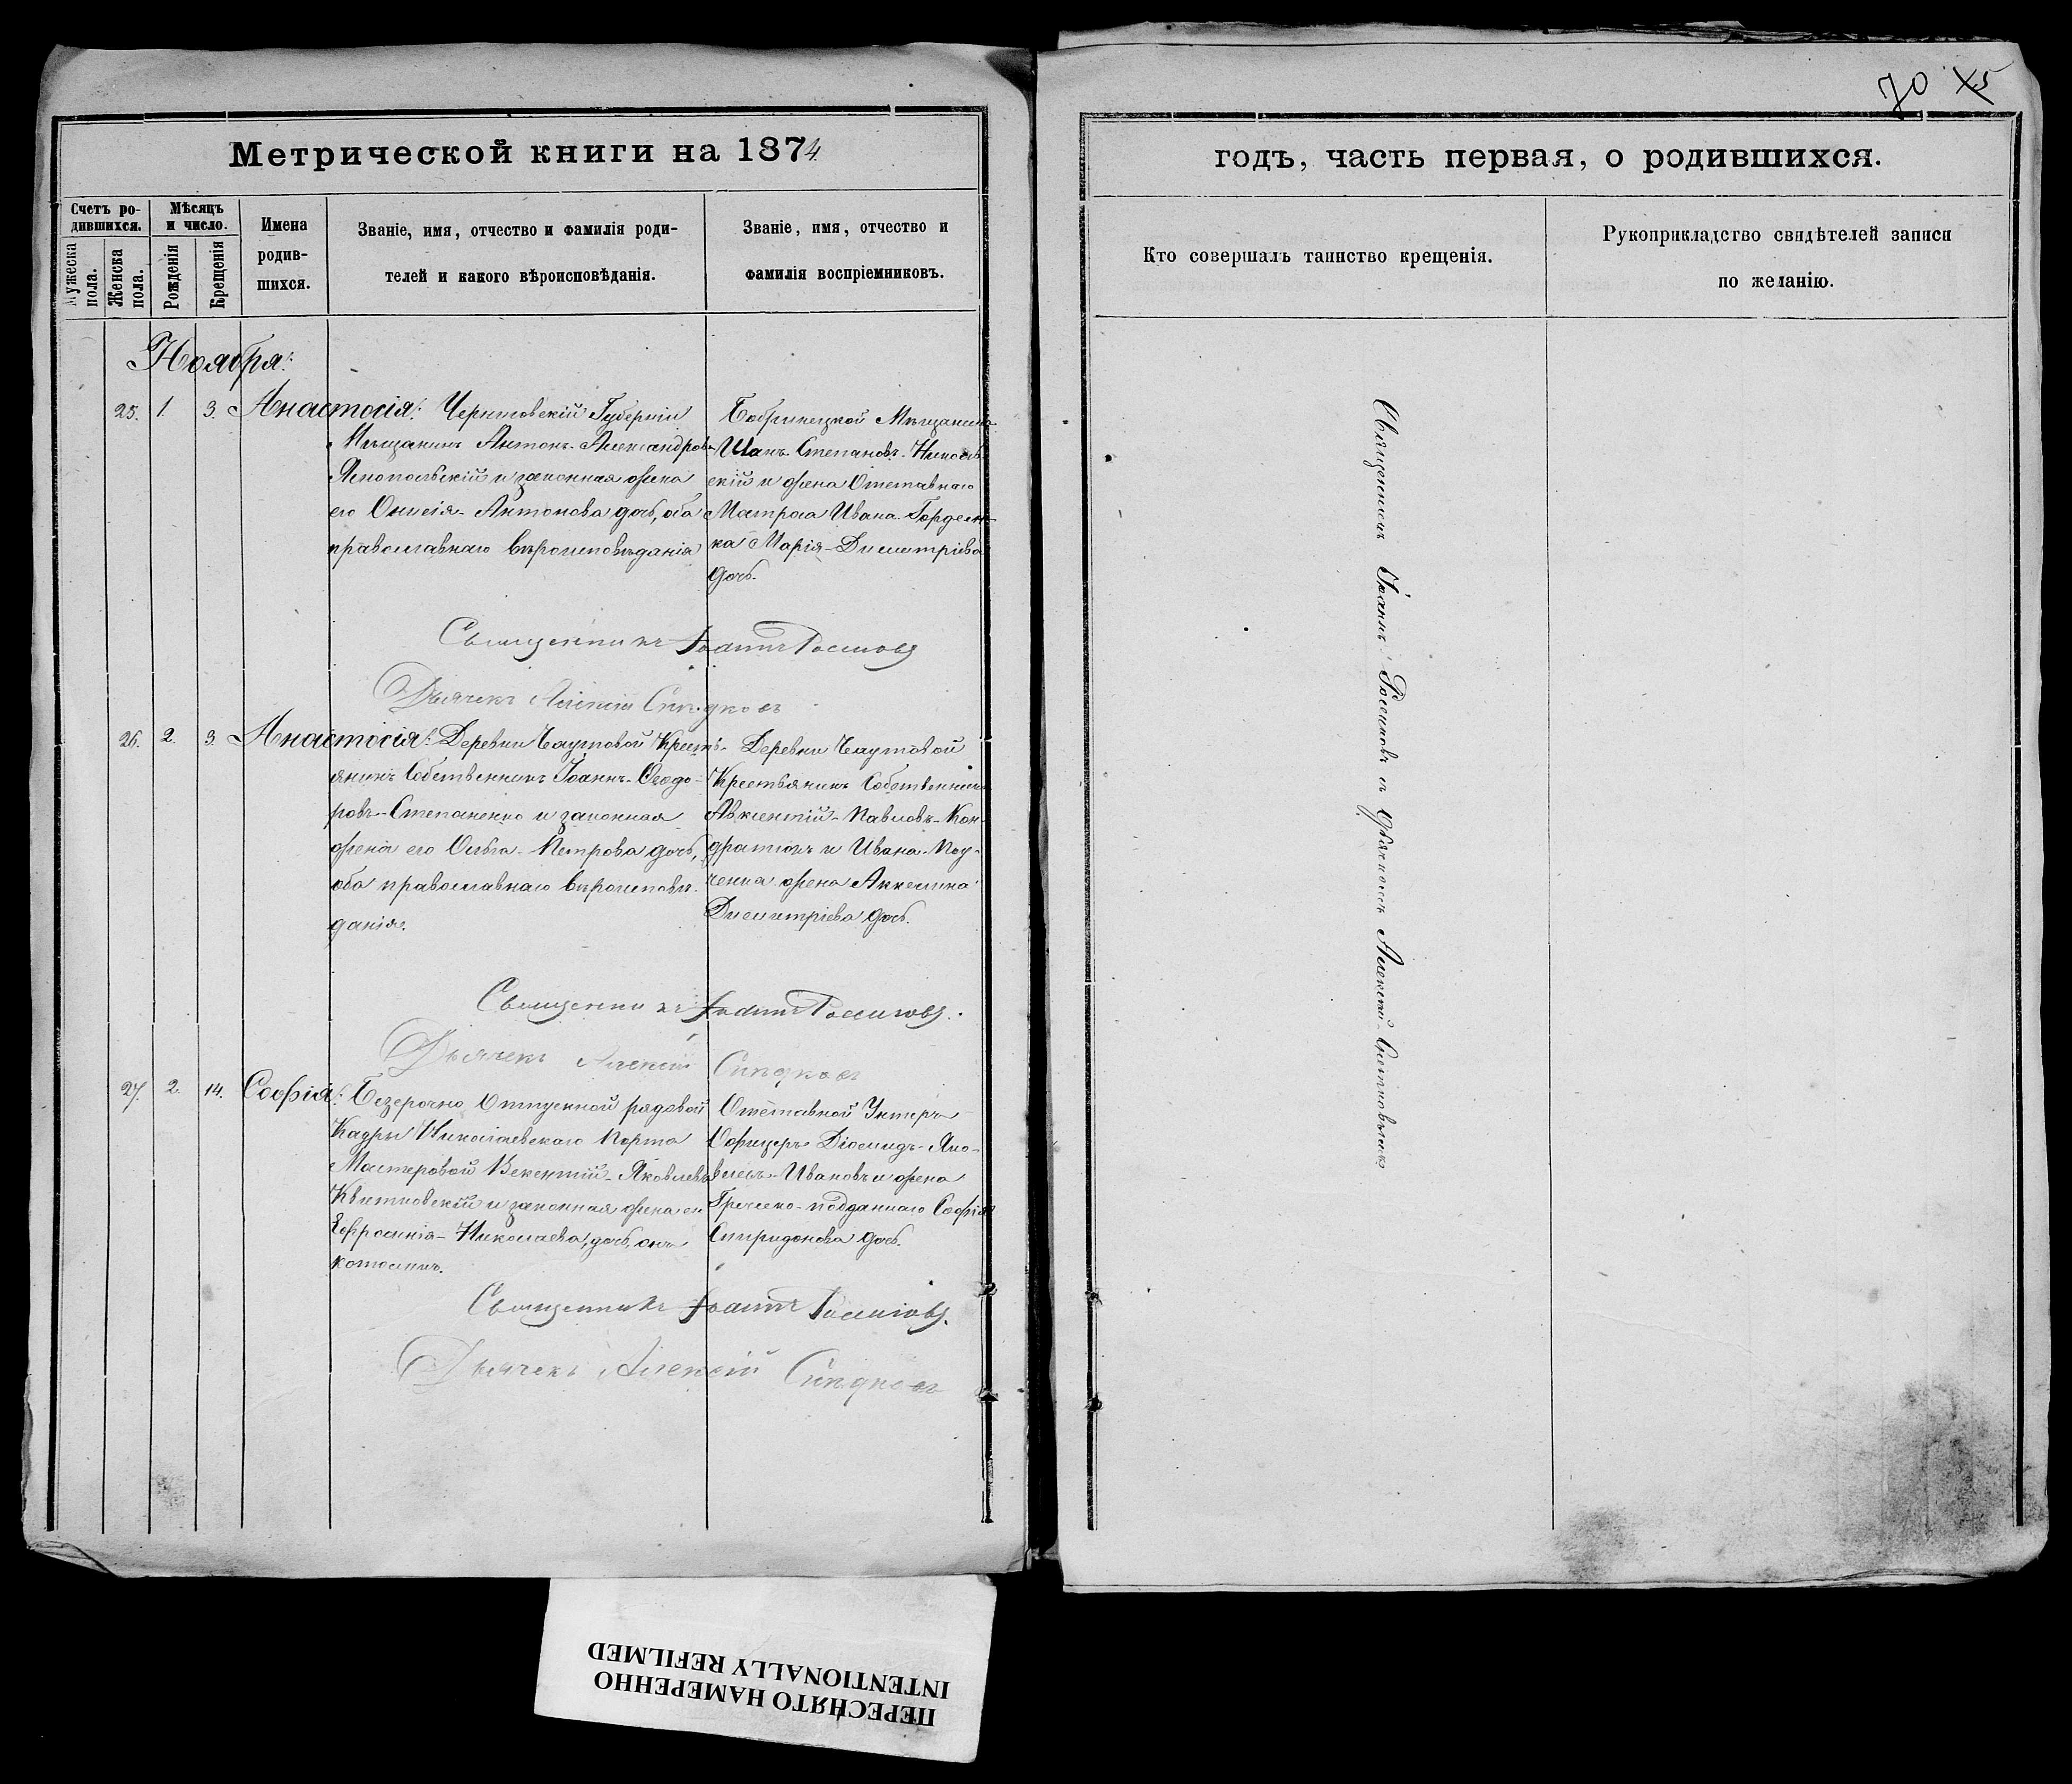 Метрической книги на 1874.
Счетъ родившихся.
Мѣсяцъ и число.
Мужеска пола.
Женска пола.
Рожденія
Крещенія
Имена родившихся.
Званіе, имя, отчество и фамилія роди-
телей и какого вѣроисповѣданія.
Званіе, имя, отчество и
фамилія воспріемниковъ.
Ноября:
25. 1. 3. Анастасія:
Мѣщанинъ Антонъ Александровъ
и законная жена
его Антонова дочь, оба
православнаго вѣроисповѣданія
Бобринецкой Мѣщанинъ
Иванъ Степановъ
и жена Отставнаго
Матроса Ивана Гордеен-
ка Марія Димитріева
дочь.
Священникъ Іоаннъ
Дьячекъ Алексій
26. 2. 3. Анастасія: Деревни Кресть-
янинъ Собственникъ Іоаннъ Ѳеодо-
ровъ Степаненко и законная
жена его Ольга Петрова дочь,
оба православнаго вѣроисповѣ-
данія.
Деревни
Крестьянинъ Собственникъ
Авксентій Павловъ Кон-
и Ивана
жена Аккелина
Димитріева дочь.
Священникъ Іоаннъ
Дьячекъ Алексій
27. 2. 14. Софія: Безсрочно Отпускной рядовой
Кадры Николаевскаго Порта
Мастеровой Викентій Яковлевъ
Квятковскій и законная жена его
Ефросинія Николаева дочь, онъ
католикъ.
Отставной Унтеръ
Офицеръ Діомидъ Яко-
влевъ Ивановъ и жена
Греческо-подданнаго Софія
Спиридонова дочь.
Священникъ Іоаннъ
Дьячекъ Алексій
70 75
годъ, часть первая, о родившихся.
Кто совершалъ таинство крещенія.
Рукоприкладство свидѣтелей записи
по желанію.
Священникъ Іоаннъ съ Дьячкомъ Алексіемъ
ПЕРЕСНЯТО НАМЕРЕННО
INTENTIONALLY REFILMED